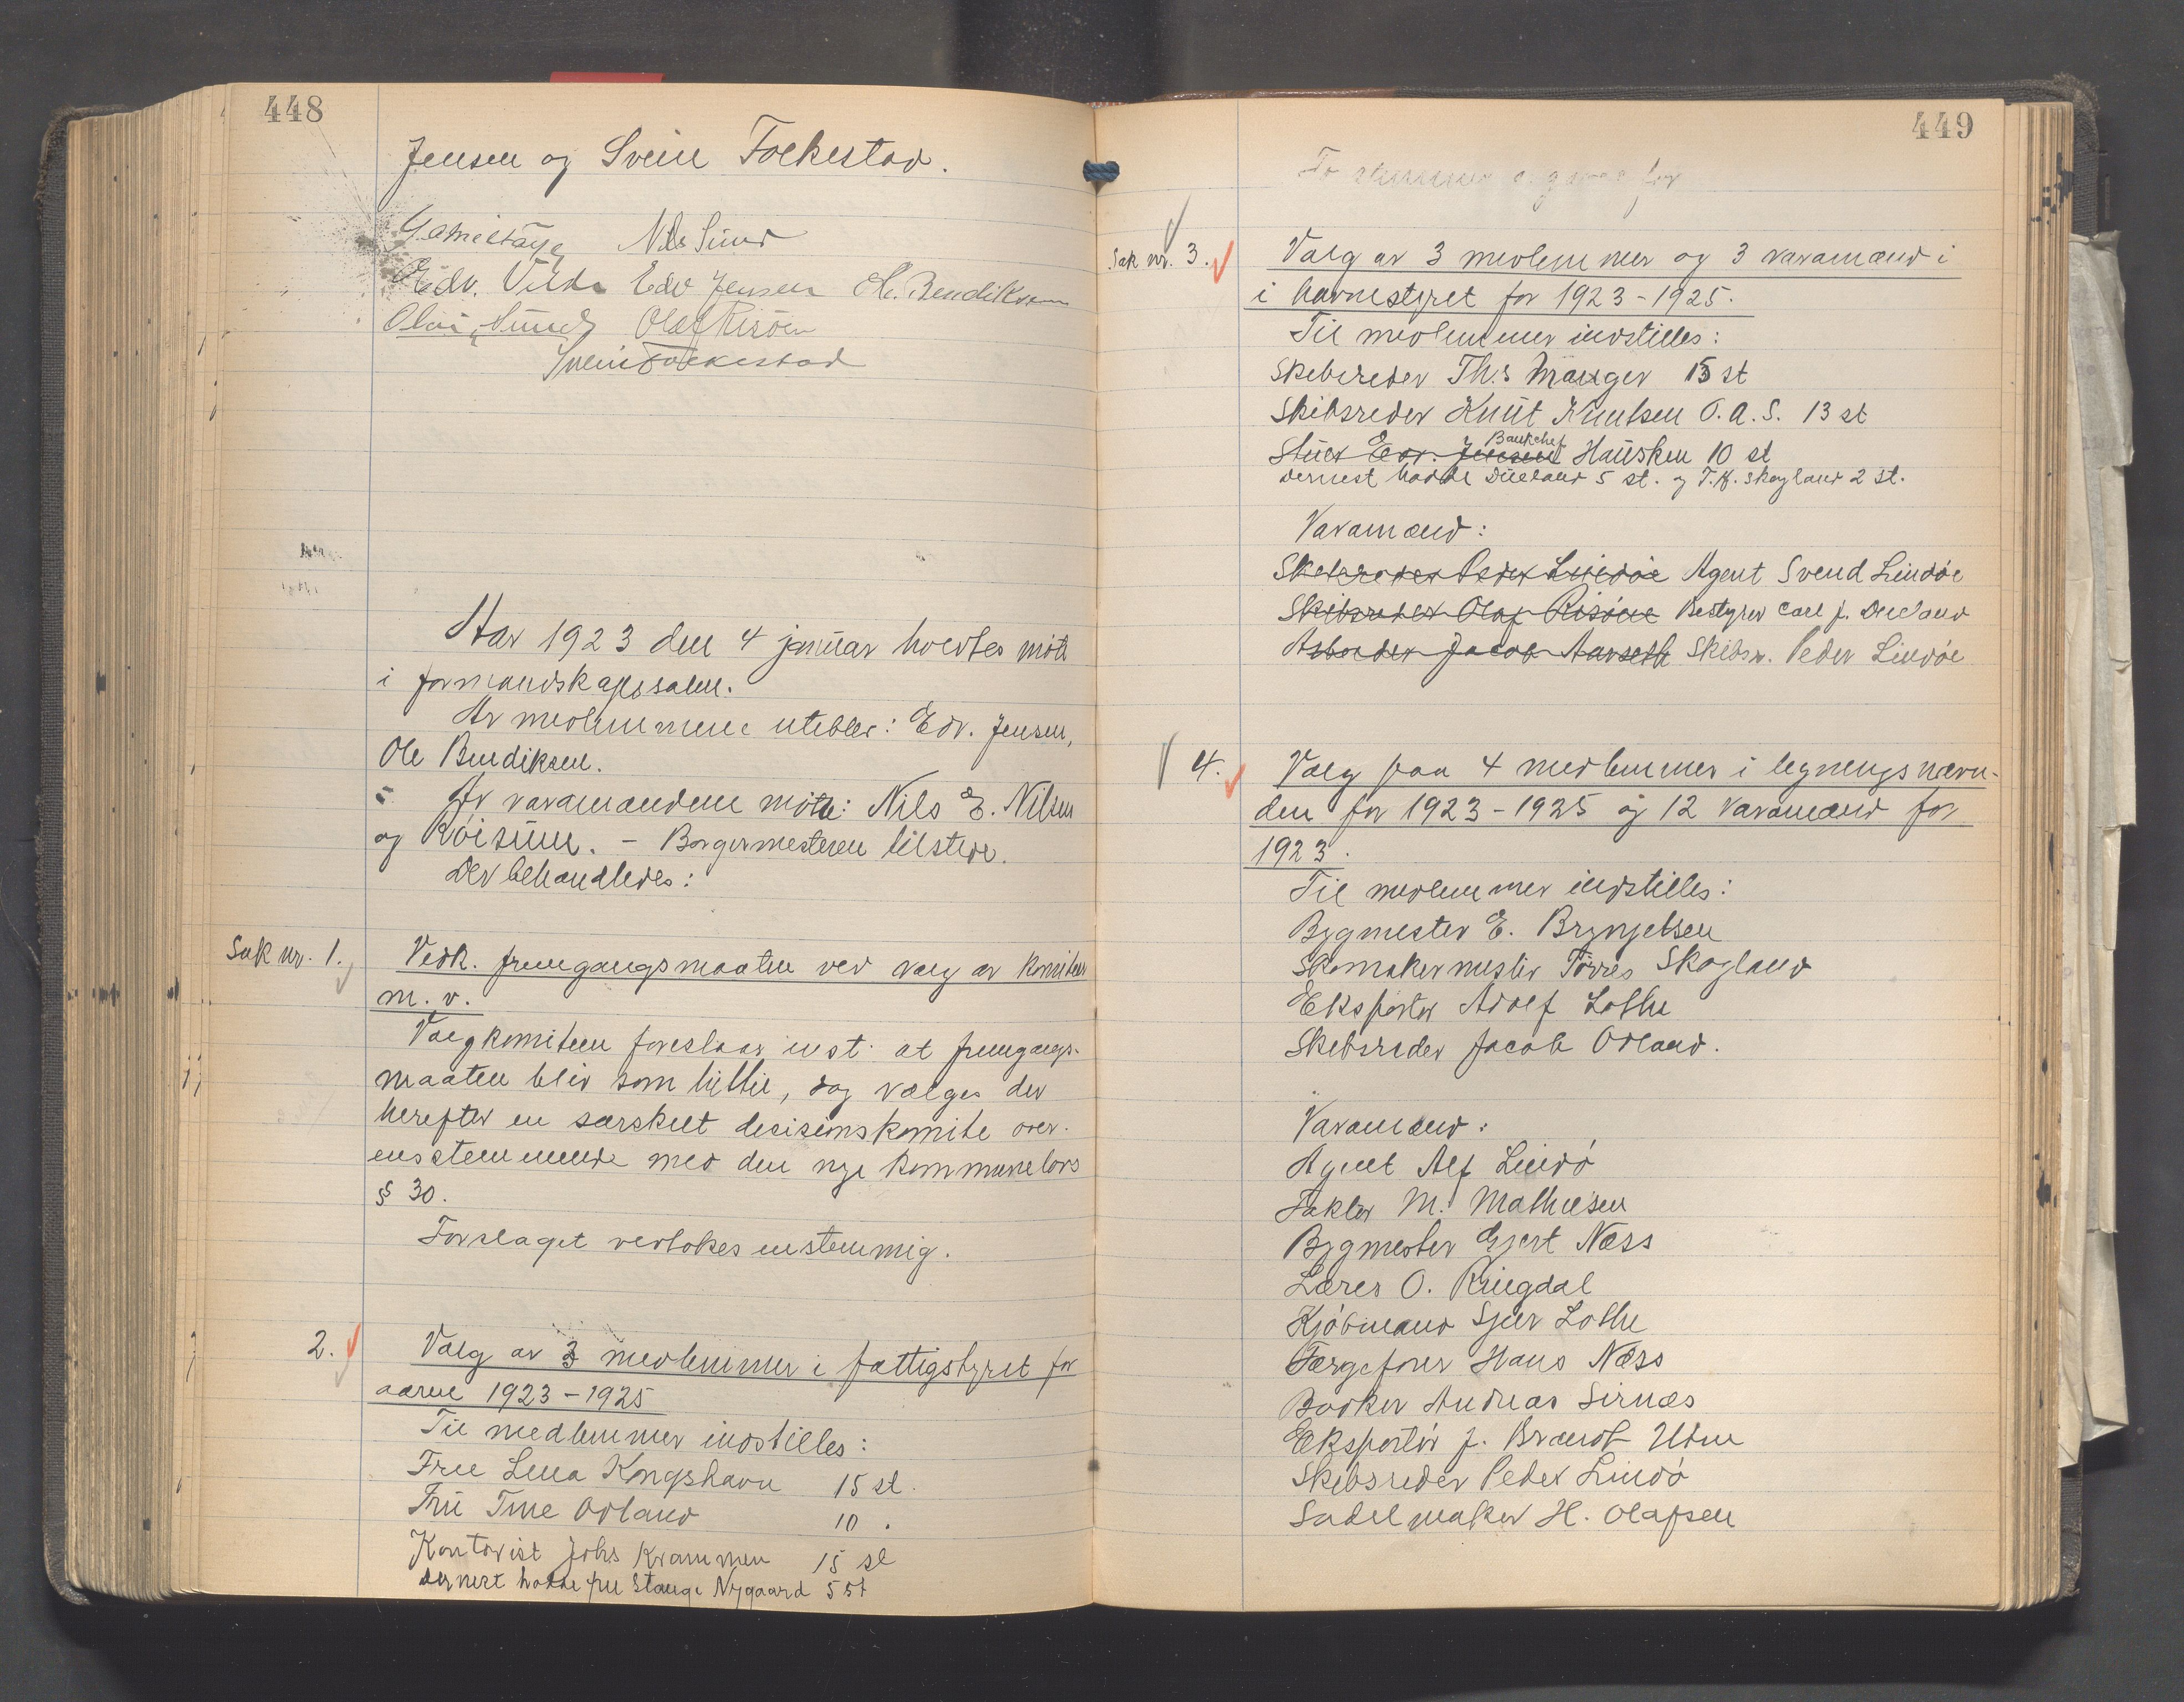 448
Jensen og Svein Folkestad.
Nils Sund
Edv. Jensen Ol. Bendiksen
Olaf Risøen
Svein Folkestad
Aar 1923 den 4 januar holdtes møte
i formandskapssalen.
Av medlemmene uteblev: Edv. Jensen,
Ole Bendiksen.
Av varamændene møtte: Nils E. Nilsen
og Røisund. - Borgermesteren tilstede.
Der behandledes:
Sak nr. 1. Vedk. fremgangsmaaten ved valg av komiteer
m. v.
Valgkomiteen foreslaar inst: at fremgangs-
maaten blir som hittil, dog vælges der
herefter en særskilt desisionskomite over-
ensstemmende med den nye kommunelovs
§ 30.
Forslaget vedtokes enstemmig.
2. Valg av 3 medlemmer i fattigstyret for
aarene 1923-1925
Til medlemmer indstilles:
Fru Lena Kongshavn 15 st.
Fru Tine Odland 10 .
Kontorist Johs Krammen 15 st
dernest hadde fru Stange Nygaard 5 st
449
Sak nr. 3. Valg av 3 medlemmer og 3 varamænd i
i havnestyret for 1923-1925.
Til medlemmer indstilles:
Skibsreder Th.s Mauger 15 st
Skibsreder Knut Knutsen O.A.S. 13 st
Stuer Edv. Jensen Bankchef Hausken 10 st
dernest hadde Dueland 5 st. og T.K. Skogland 2 st.
Varamænd:
Skibsreder Peder Lindøe Agent Svend Lindøe
Skibsreder Olaf Risøen Bestyrer Carl J. Dueland
Arbeider Jacob Aarseth Skibsr. Peder Lindøe
4. Valg paa 4 medlemmer i legningsnævn-
den for 1923-1925 og 12 varamænd for
1923.
Til medlemmer indstilles:
Bygmester E. Brynjelsen
Skomakermester Tørres Skogland
Eksportør Adolf Lothe
Skibsreder Jacob Odland.
Varamænd:
Agent Alf Lindø
Faktor M. Mathiesen
Bygmester Gjert Næss
Lærer O. Ringdal
Kjøbmand Sjur Lothe
Færgefører Hans Næss
Bødker Andreas Sirnæs
Eksportør J. Brandt Utne
Skibsreder Peder Lindø
Sadelmaker H. Olafsen